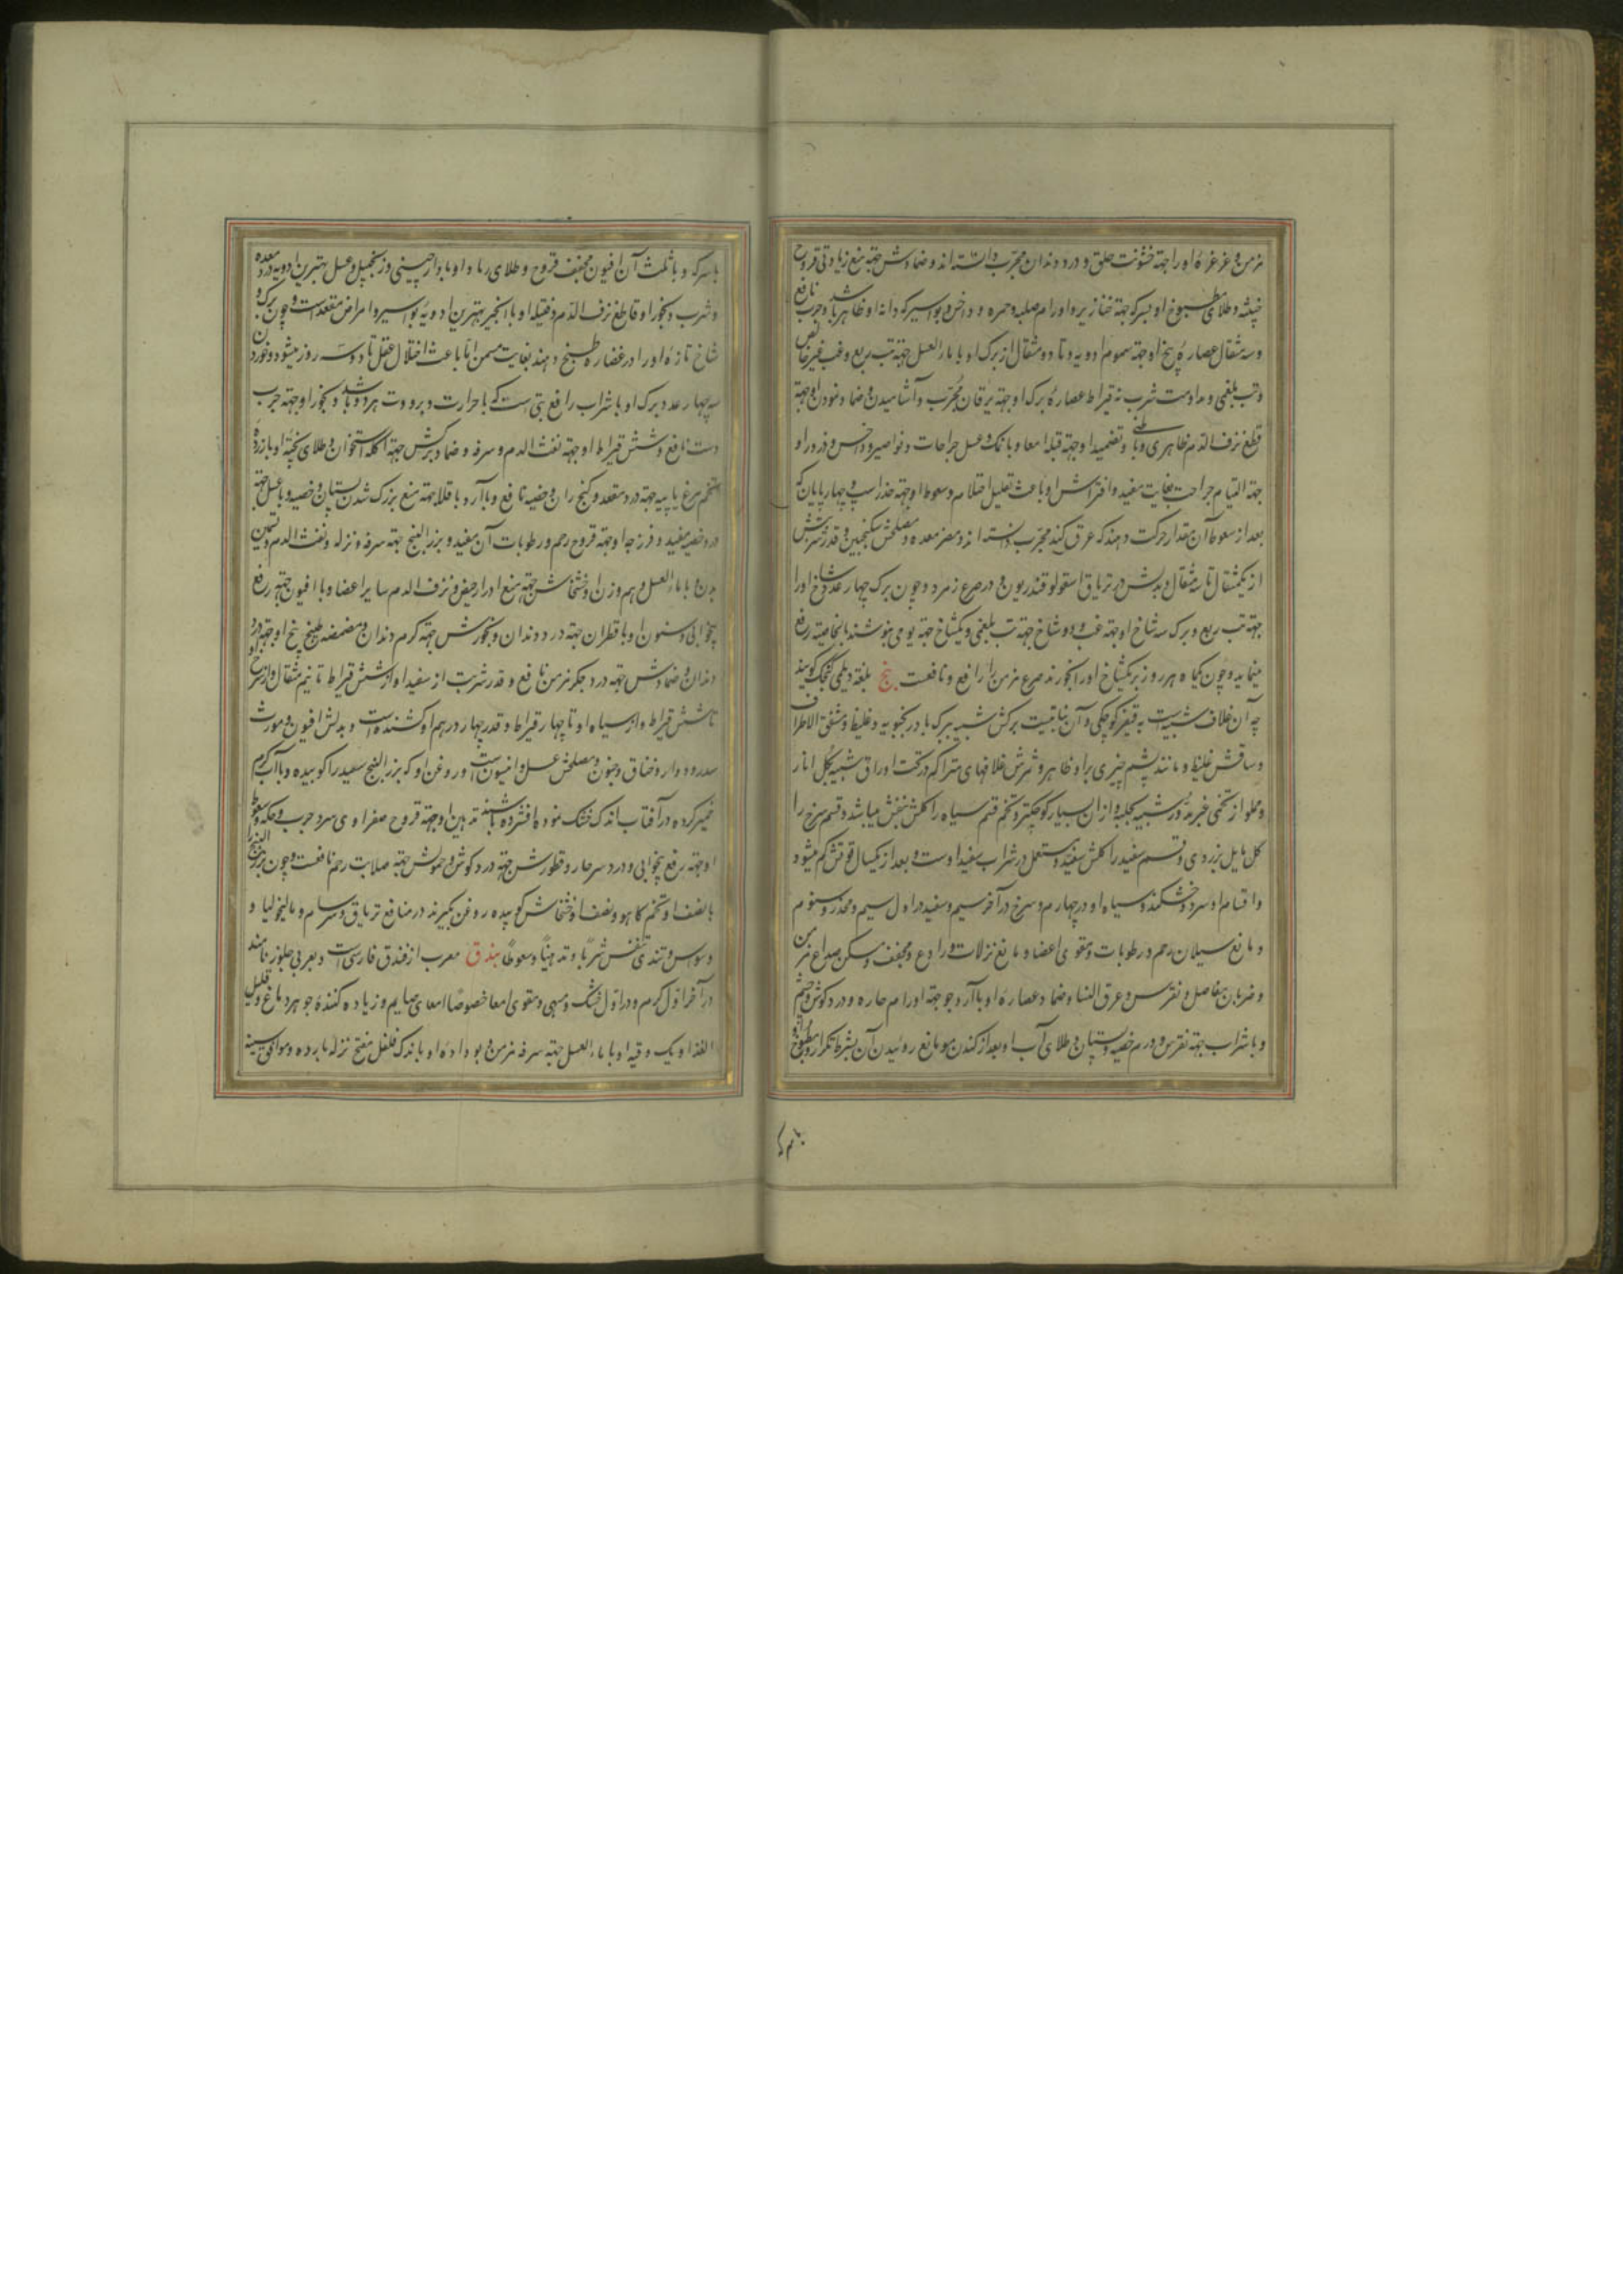 مزمن و غرغرهٔ او را جهة خشونت حلق و درد دندان مجرّب دانسته‌اند و ضمادش جهة منع زیادتی قروح
خبیثه و طلای مطبوخ او بسرکه جهة خنازیر و اورام صلبه و حمره و داخس و بواسیر که دانهٔ او ظاهر باشد و جرب نافع
و سه مثقال عصارهٔ بیخ او جهة سموم ادویه و تا دو مثقال از برک او با ماء العسل جهة تب ربع و غب غیر خالص
و تب بلغمی و مداومت شرب نه قیراط عصارهٔ برک او جهة یرقان مجرّب و آشامیدن و ضماد نمودن او جهة
قطع نزف الدّم ظاهری و باطنی و تضمید او جهة قیلهٔ امعا و با نمک و عسل جراحات و نواصیر و داخس و ذرور او
جهة التیام جراحت بغایت مفید و افتراش او باعث تقلیل احتلام و سعوط او جهة خدر اسب و چهارپایان که
بعد از سعوط آن مقدار حرکت دهند که عرق کند مجرّب دانسته‌اند و مضر معده و مصلحش سکنجبین و قدر شربتش
از یکمثقال تا سه مثقال و بدلش در تریاق اسقولوقندریون و در صرع زمرد و چون برک چهار عدد شاخ او را
جهة تب ربع و برک سه شاخ او جهة غب و دو شاخ جهة تب بلغمی و یکشاخ جهة یومی بنوشند بالخاصیه رفع
مینماید و چون یکماه هر روز برک یکشاخ او را بخورند صرع مزمن را رافع و نافعست بنج بلغة دیلمی کیجک کویند
چه آن غلاف شبیست به قیفر کوچکی و آن نباتیست برکش شبیه ببرک بادرنجبویه و غلیظ و مشقق الاطراف
و ساقش غلیظ و مانند پشم چیزی بر او ظاهر و ثمرش غلافهای متراکم در تحت اوراق شبیه بکل انار
و مملو از تخمی غیر مدور شبیه بحلبه و از ان بسیار کوچکتر و تخم قسم سیاه را کلش بنفش میباشد و قسم سرخ را
کل مایل بزردی و قسم سفید را کلش سفید و مستعمل در شراب سفید اوست و بعد از یکسال قوتش کم میشود
و اقسام او سرد و خشکند و سیاه او در چهارم و سرخ در آخر سیم و سفید در اول سیم و مخدر و منوم
و مانع سیلان رحم و رطوبات و مقوی اعضا و مانع نزلات و رادع و مجفف و مسکن صداع مزمن
و ضربان مفاصل و نقرس و عرق النسا و ضماد عصارهٔ او با آرد جو جهة اورام حاره و درد کوش و چشم
و با شراب جهة نقرس و ورم خصیه و پستان و طلای آب او بعد از کندن مو مانع روئیدن آن بشرط تکرار و مطبوخ او
با سرکه
با سرکه و با ثلث آن افیون مجفف قروح و طلای رماد او با دارچینی و زنجبیل و عسل بهترین ادویه درد معده
و شرب و بخور او قاطع نزف الدّم و فتیلهٔ او با انجیر بهترین ادویهٔ بواسیر و امراض مقعد است و چون برک و
شاخ تازهٔ او را در غضاره طبخ دهند بغایت مسمن امّا باعث اختلال عقل تا دو سه روز میشود و خوردن
سه چهار عدد برک او با شراب رافع تبی است که با حرارت و برودت هر دو باشد و بخور او جهة جرب
دست نافع و شش قیراط او جهة نفث الدم و سرفه و ضماد برکش جهة اکله استخوان و طلای پختهٔ او با زردهٔ
تخم مرغ یا پیه جهة درد مقعد و کنج ران و خصیه نافع و با آرد باقلا جهة منع بزرک شدن پستان و خصیه و با عسل جهة
درد خصیه مفید و فرزجهٔ او جهة قروح رحم و رطوبات آن مفید و بزر البنج جهة سرفه و نزله و نفث الدم و تسمین
بدن و با ماء العسل و هم وزن او خشخاش جهة منع ادرار حیض و نزف الدم سایر اعضا و با افیون جهة رفع
بیخوابی و سنون او با قطران جهة درد دندان و بخورش جهة کرم دندان و مضمضه طبیخ بیخ او جهة درد
دندان و ضمادش جهة درد جکر مزمن نافع و قدر شربت از سفید او از شش قیراط تا نیم مثقال و از سرخ او
تا شش قیراط و از سیاه او تا چهار قیراط و قدر چهار درهم او کشنده است و بدلش افیون و مورث
سدر و دوار و خناق و جنون و مصلحش عسل و انیسون است و روغن او که بزر البنج سفید را کوبیده و با آب کرم
خمیر کرده در آفتاب اندک خشک نموده افشرده باشند تدهین او جهة قروح صفراوی سر و جرب و حکه و سعوط
او جهة رفع بیخوابی و درد سر حار و قطورش جهة درد کوش و حمولش جهة صلابت رحم نافعست و چون بزر البنج را
با نصف او تخم کاهو و نصف او خشخاش کوبیده روغن بکیرند در منافع تریاق و سرسام و مالیخولیا و
وسواس و تندی نفس شرباً و تدهیناً و سعوطاً بندق معرب از فندق فارسی است و بعربی جلوز نامند
در آخر اول کرم و در اول خشک و مبهی و مقوی امعا خصوصاً امعای صایم و زیاده کنندهٔ جوهر دماغ و قلیل
الغذا و یک وقیهٔ او با ماء العسل جهة سرفه مزمن و بو دادهٔ او با اندک فلفل منضج نزلهٔ بارده و موافق سینه